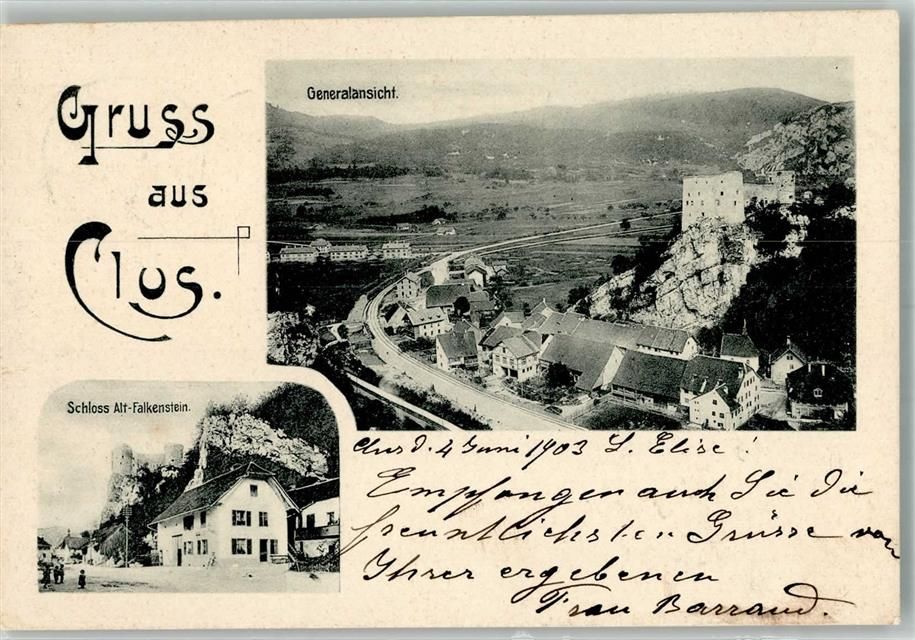 Gruss
aus
Clus.
Generalansicht.
Schloss Alt-Falkenstein.
Clus d. 4 Juni 1903 L. Elise!
Empfangen auch Sie die
freuntlichsten Grüsse von
Ihrer ergebenen
Frau Barraud.